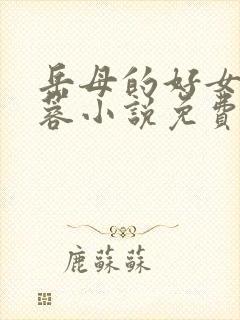 岳母的好女
蓉小說免費
鹿蘇蘇